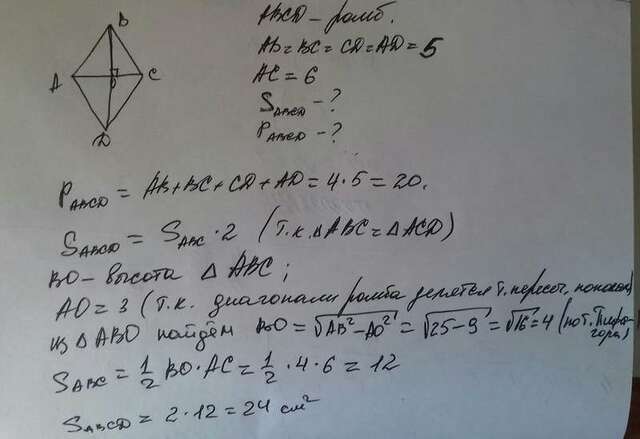 B
A
C
O
D
ABCD – ромб.
AB = BC = CD = AD = 5
AC = 6
S ABCD – ?
P ABCD – ?
P ABCD = AB + BC + CD + AD = 4·5 = 20.
S ABCD = S ABC · 2 (т.к. △ABC = △ACD)
BO – высота △ ABC;
AO = 3 (т.к. диагонали ромба делятся т. пересеч. пополам)
из △ ABO найдём BO = √AB² – AO² = √25 – 9 = √16 = 4 (по т. Пифагора)
S ABC = 1/2 BO · AC = 1/2 · 4 · 6 = 12
S ABCD = 2 · 12 = 24 см²